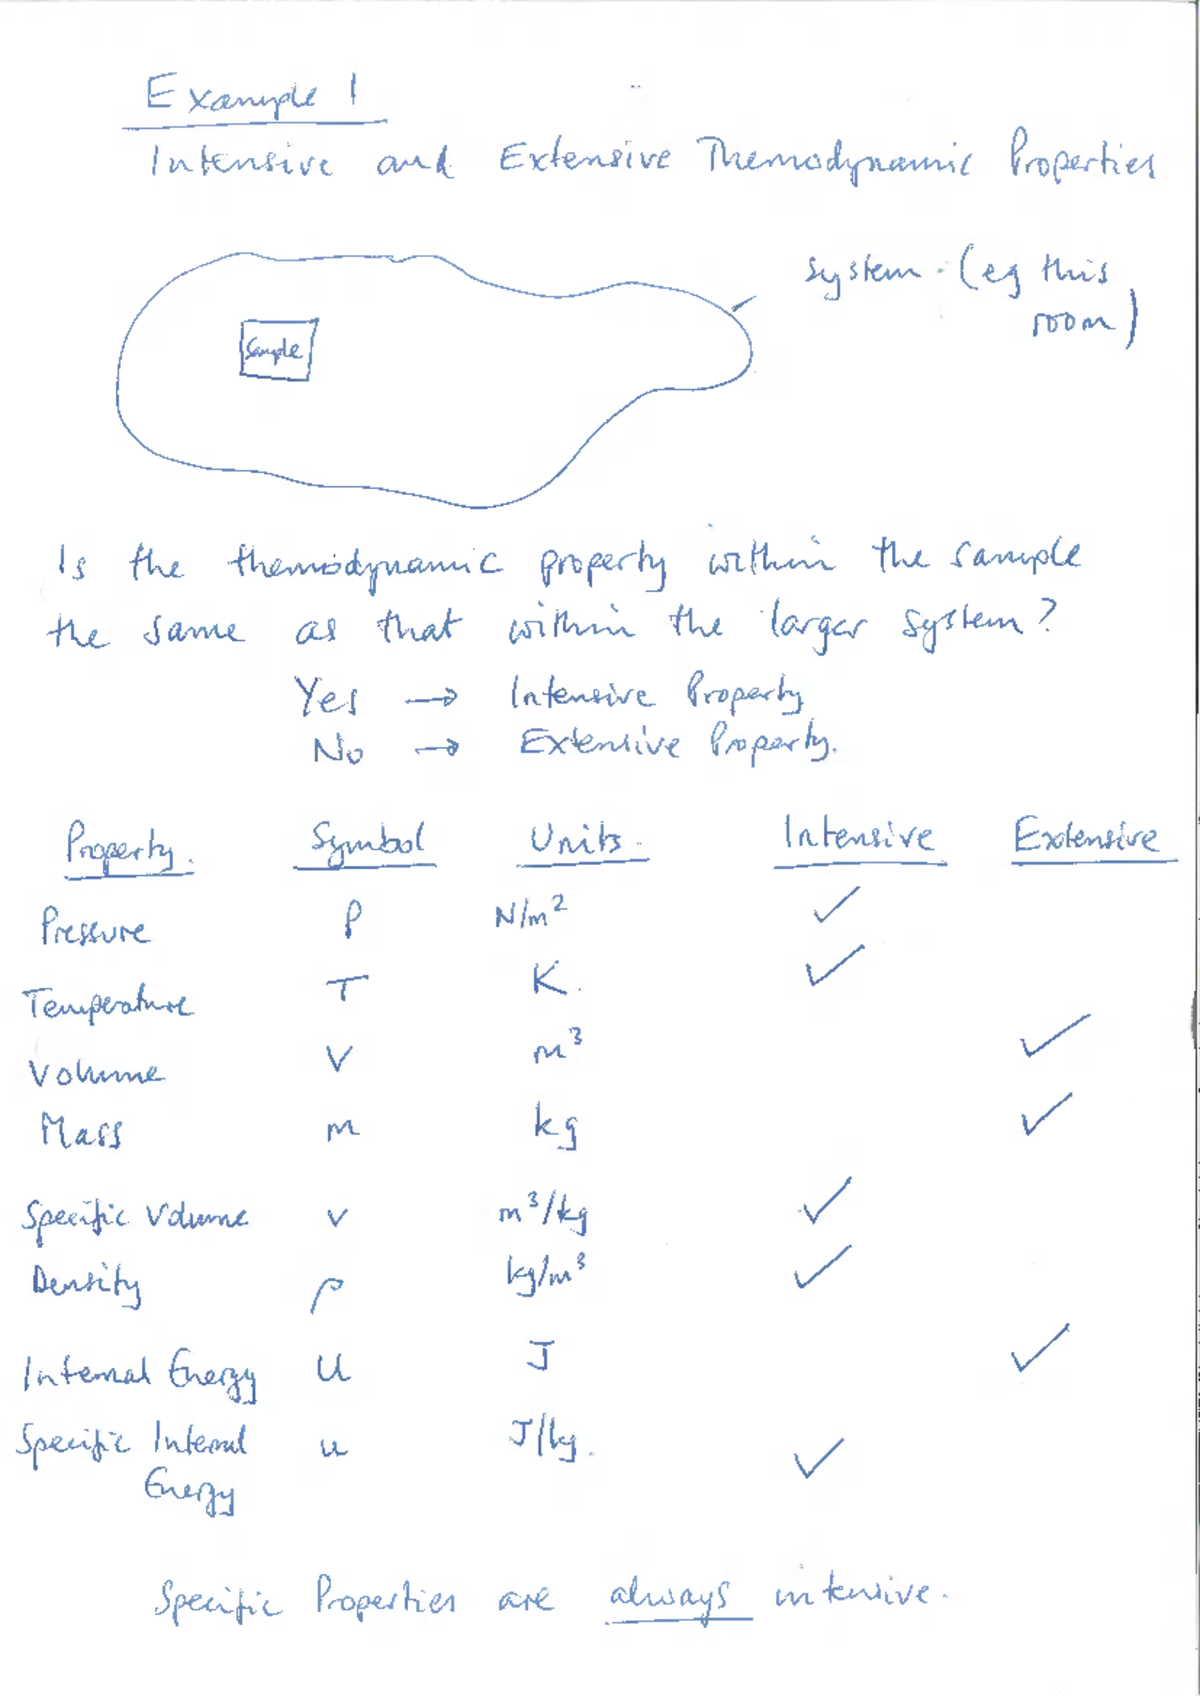 Example 1
Intensive and Extensive Themodynamic Properties
System. (eg this
room)
Sample
Is the themodynamic property within the sample
the same as that within the larger system?
Yes → Intensive Property
No → Extensive Property.
Property. Symbol Units. Intensive Extensive
Pressure P N/m² ✓
Temperature T K. ✓
Volume V m³ ✓
Mass m kg ✓
Specific Volume v m³/kg ✓
Density ρ kg/m³ ✓
Internal Energy U J ✓
Specific Internal u J/kg. ✓
Energy
Specific Properties are always intensive.